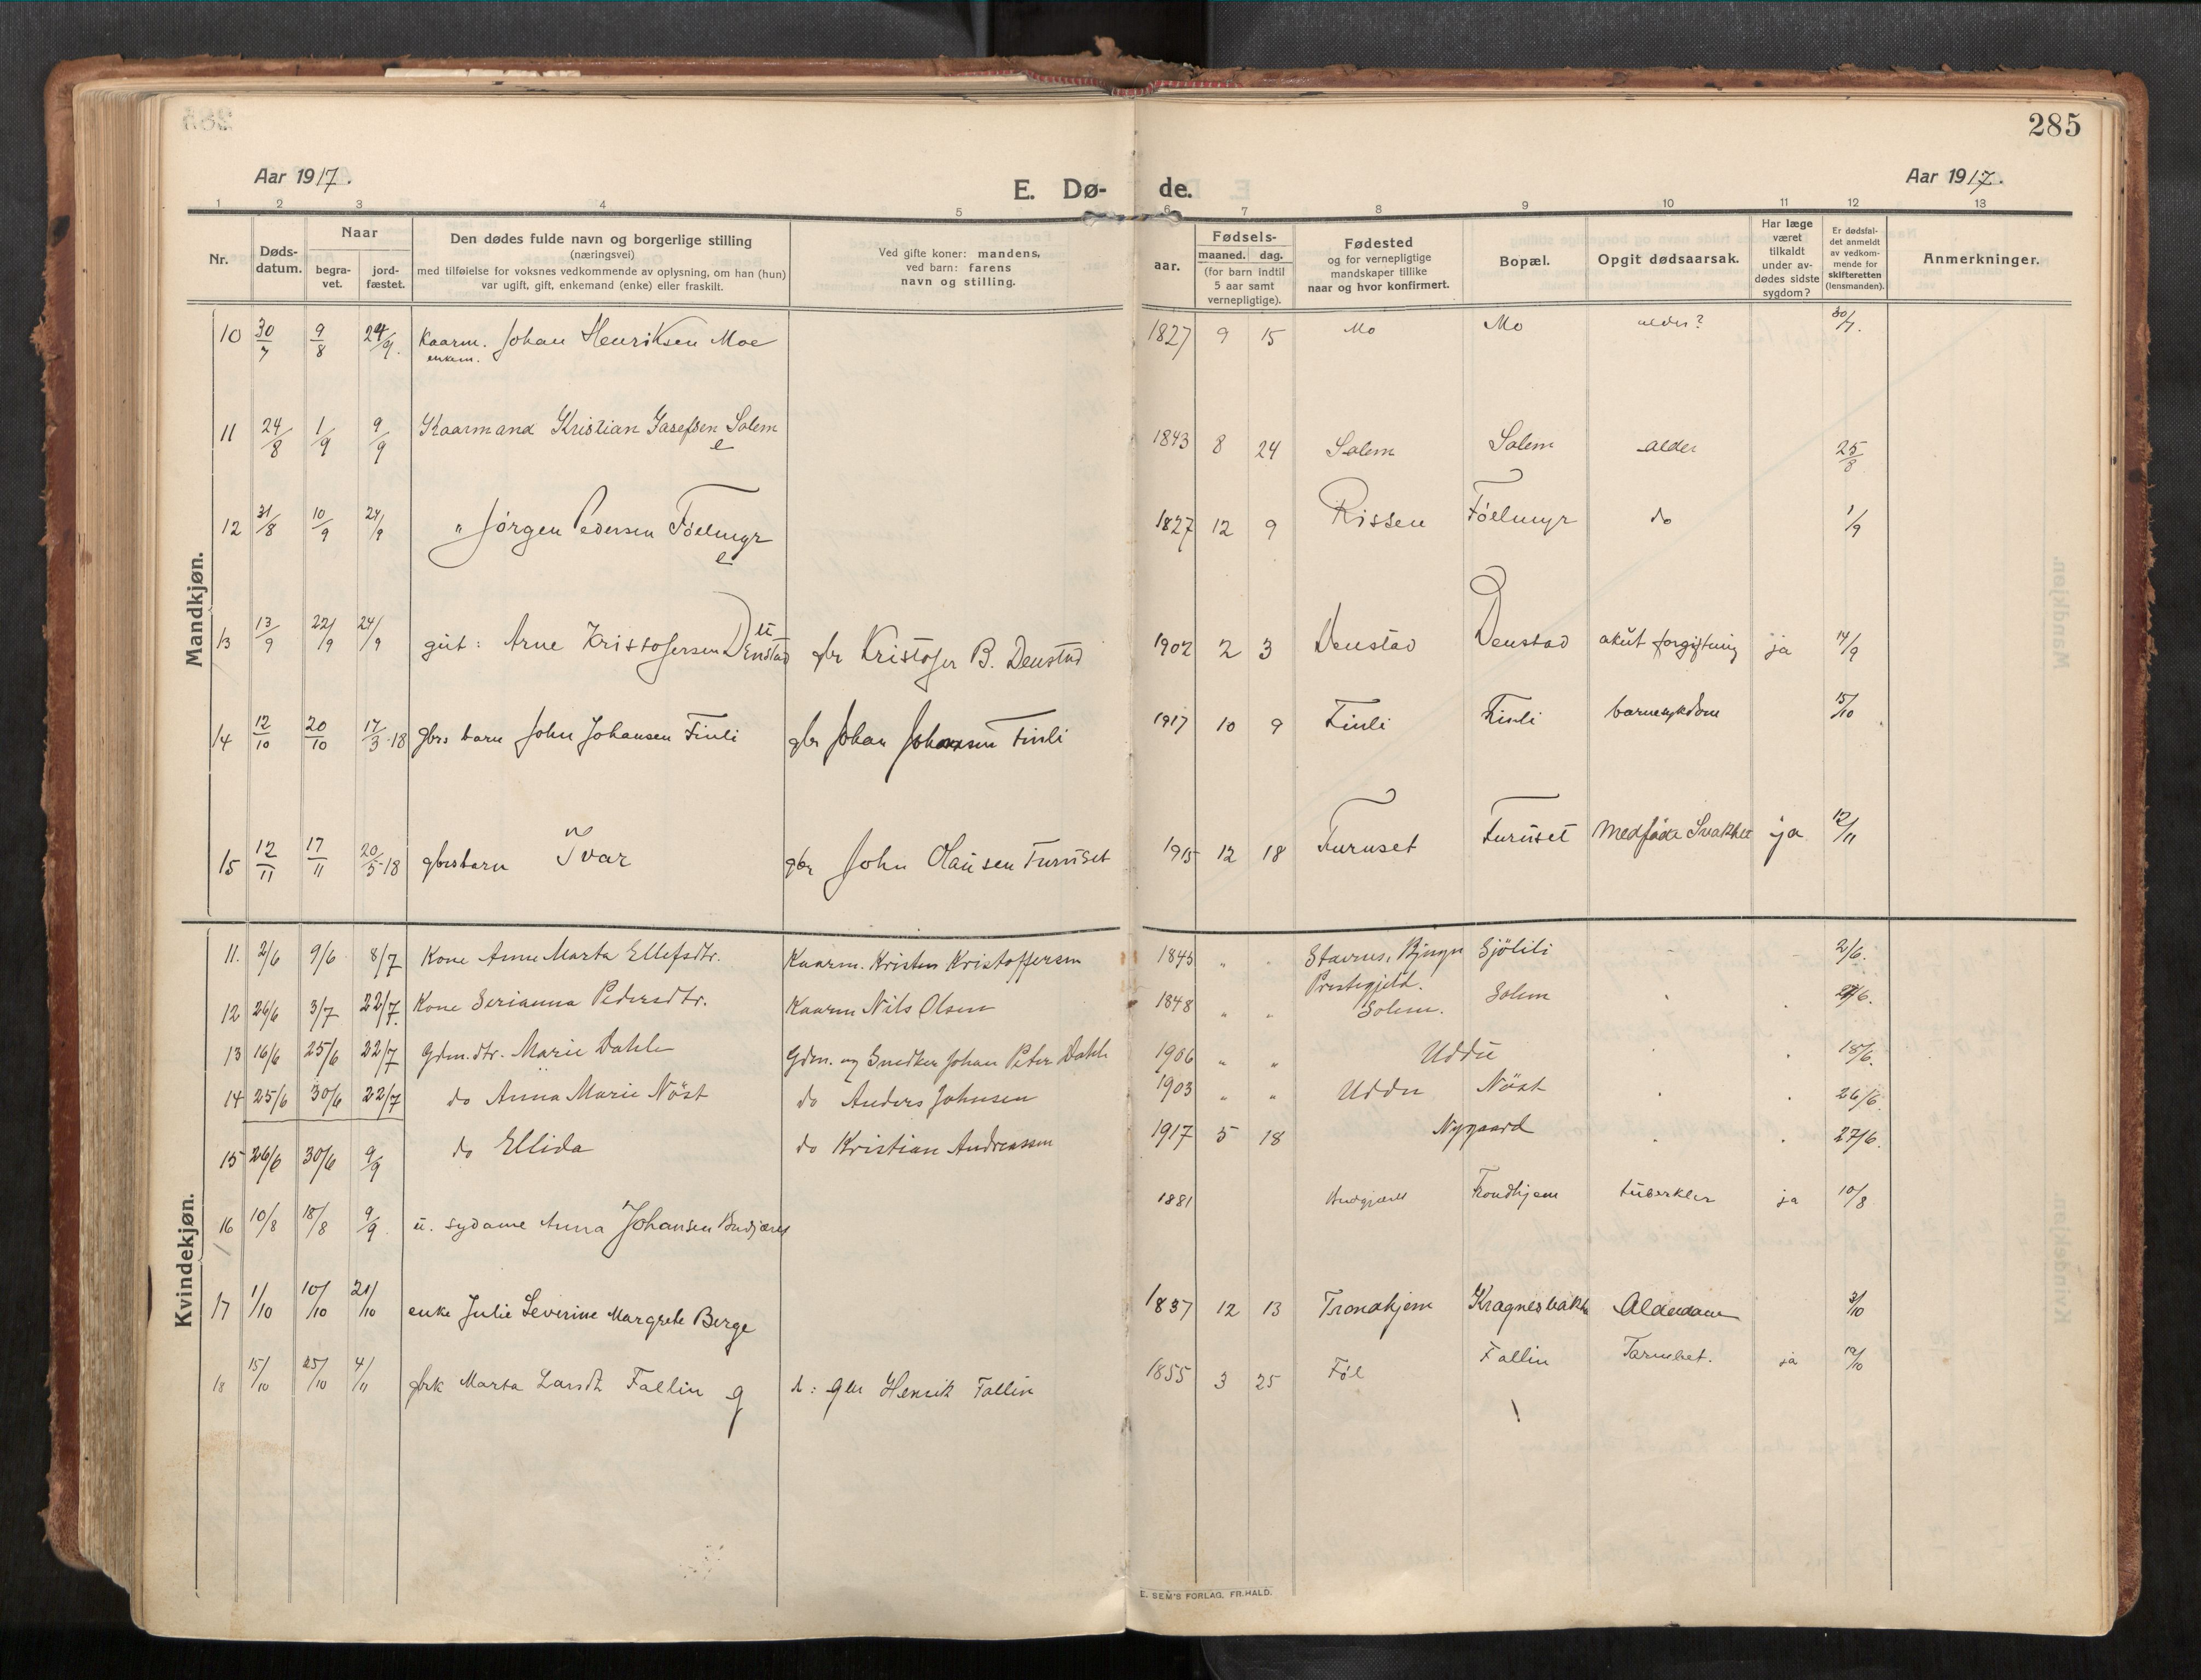 285
Aar 1917.
E. Dø- de.
Aar 1917.
1 2 3 4 5 6 7 8 9 10 11 12 13
Nr.
Døds-
datum.
Naar
begra-
vet.
jord-
fæstet.
Den dødes fulde navn og borgerlige stilling
(næringsvei)
med tilføielse for voksnes vedkommende av oplysning, om han (hun)
var ugift, gift, enkemand (enke) eller fraskilt.
Ved gifte koner: mandens,
ved barn: farens
navn og stilling.
aar.
Fødsels-
maaned. dag.
(for barn indtil
5 aar samt
vernepligtige).
Fødested
og for vernepligtige
mandskaper tillike
naar og hvor konfirmert.
Bopæl.
Opgit dødsaarsak.
Har læge
været
tilkaldt
under av-
dødes sidste
sygdom?
Er dødsfal-
det anmeldt
av vedkom-
mende for
skifteretten
(lensmanden).
Anmerkninger.
Mandkjøn.
10 30/7 9/8 24/9. Kaarm. Johan Henriksen Moe 1827 9 15 Mo Mo alder? 30/7.
enkem.
11 24/8 1/9 9/9 Kaarmand Kristian Jasefsen Solem 1843 8 24 Solem Solem alder 25/8
e
12 31/8 10/9 24/9 " Jörgen Pedersen Föelmyr 1827 12 9 Rissen Föelmyr do 1/9
e
13 13/9 22/9 24/9 gut: Arne Kristofersen Denstad gbr Kristofer B. Denstad 1902 2 3 Denstad Denstad akut forgiftning ja 14/9
14 12/10 20/10 17/3-18 gbrs barn John Johansen Finli gbr Johan Johansen Finli 1917 10 9 Finli Finli barnesykdom 15/10
15 12/11 17/11 20/5-18 gbrsbarn Ivar gbr John Olausen Furuset 1915 12 18 Furuset Furuset Medföda Svakhet ja 12/11
Kvindekjøn.
11. 2/6 9/6 8/7 Kone Anne Marta Ellefsdtr. Kaarm. Kristen Kristoffersen 1845 " " Stavrus, Bjugn Sjölili 2/6.
Prestegjeld.
12 26/6 3/7 22/7. Kone Serianna Pedersdtr. Kaarm Nils Olsen 1848 " " Solem. Solem 27/6.
13 16/6 25/6 22/7 Gdm.dtr. Marie Dahle Gdm. og Snedker Johan Peter Dahle 1906 " " Uddu 18/6.
14 25/6 30/6 22/7 do Anna Marie Nöst do Anders Johnsen 1903 " " Uddu Nöst 26/6.
15 26/6 30/6 9/9 do Ellida do Kristian Andreassen 1917 5 18 Nygaard 27/6.
16 10/8 18/8 9/9. u. sydame Anna Johansen 1881 Trondhjem tuberkler ja 10/8
17 1/10 10/10 21/10 enke Julie Severine Margrete Berge 1837 12 13 Trondhjem Kragnesbakk Alderdom 3/10
18 15/10 25/10 4/11 gbrk Marta Larsdtr Fallin g d: gbr Henrik Fallin 1855 3 25 Föl Fallin Tarmbet. ja
E. SEM'S FORLAG, FR.HALD.